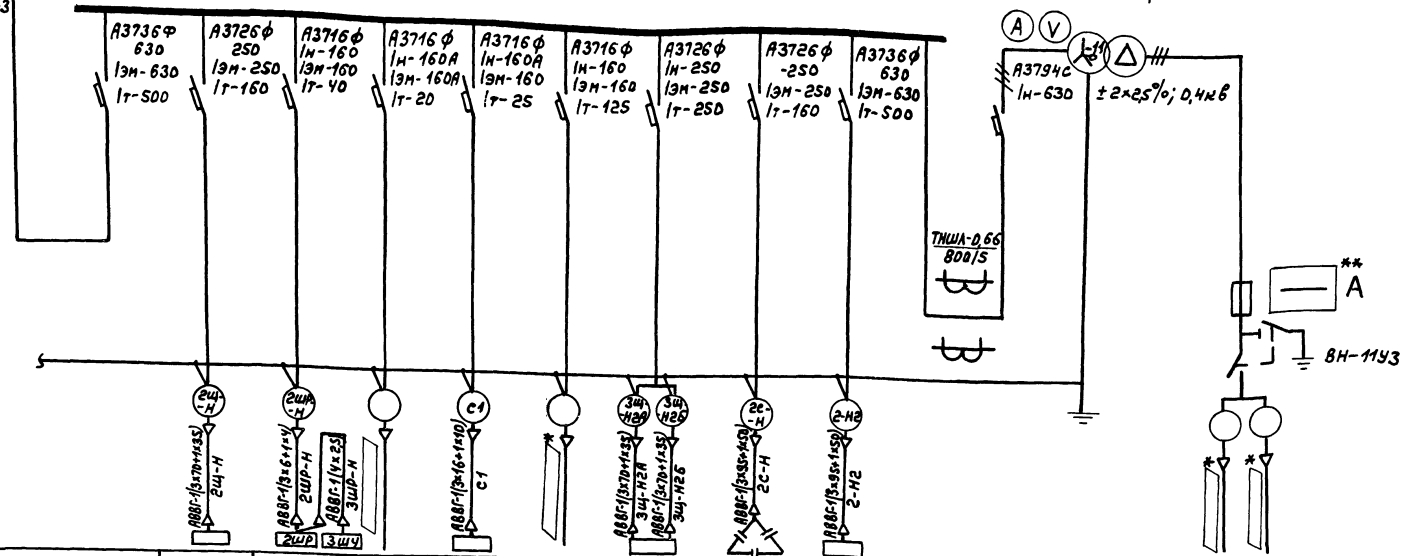 3
А3736Ф
630
Iэм-630
Iт-500
А3726Ф
250
Iэм-250
Iт-160
А3716Ф
Iн-160
Iэм-160
Iт-40
А3716Ф
Iн-160А
Iэм-160А
Iт-20
А3716Ф
Iн-160А
Iэм-160
Iт-25
А3716Ф
Iн-160
Iэм-160
Iт-125
А3726Ф
Iн-250
Iэм-250
Iт-250
А3726Ф
-250
Iэм-250
Iт-160
А3736Ф
630
Iэм-630
Iт-500
А V
А3794С
Iн-630
-11
Δ
±2×2,5%; 0,4кв
ТНШЛ-0,66
800/5
**
А
ВН-11У3
2Щ-
-Н
2ШР-
-Н
С1
3Щ-
-Н2А
3Щ-
-Н2Б
2С-
-Н
2-Н2
АВВГ-1(3×70+1×35)
2Щ-Н
АВВГ-1(3×6+1×4)
2ШР-Н
АВВГ-1(4×2,5)
3ШР-Н
АВВГ-1(3×16+1×10)
С1
*
АВВГ-1(3×70+1×35)
3Щ-Н2А
АВВГ-1(3×70+1×35)
3Щ-Н2Б
АВВГ-1(3×95+1×50)
2С-Н
АВВГ-1(3×95+1×50)
2-Н2
*
*
2ШР
3ШУ